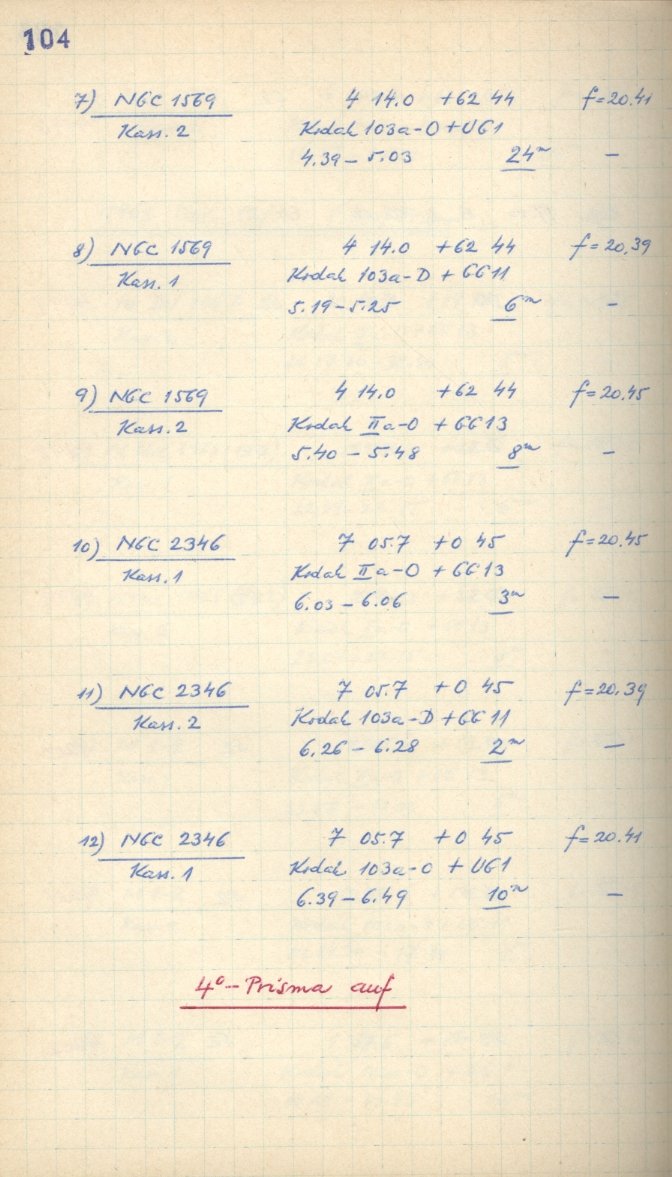 104
7) NGC 1569 4 14.0 +62 44 f=20.41
Kass. 2 Kodak 103a-O+UG1
4.39 – 5.03 24m –
8) NGC 1569 4 14.0 +62 44 f=20,39
Kass. 1 Kodak 103a-D + GG11
5.19 – 5.25 6m –
9) NGC 1569 4 14.0 +62 44 f=20.45
Kass. 2 Kodak IIa-O + GG13
5.40 – 5.48 8m –
10) NGC 2346 7 05.7 +0 45 f=20.45
Kass. 1 Kodak IIa-O + GG13
6.03 – 6.06 3m –
11) NGC 2346 7 05.7 +0 45 f=20.39
Kass. 2 Kodak 103a-D + GG11
6.26 – 6.28 2m –
12) NGC 2346 7 05.7 +0 45 f=20.41
Kass. 1 Kodak 103a-O + UG1
6.39 – 6.49 10m –
4°-Prisma auf